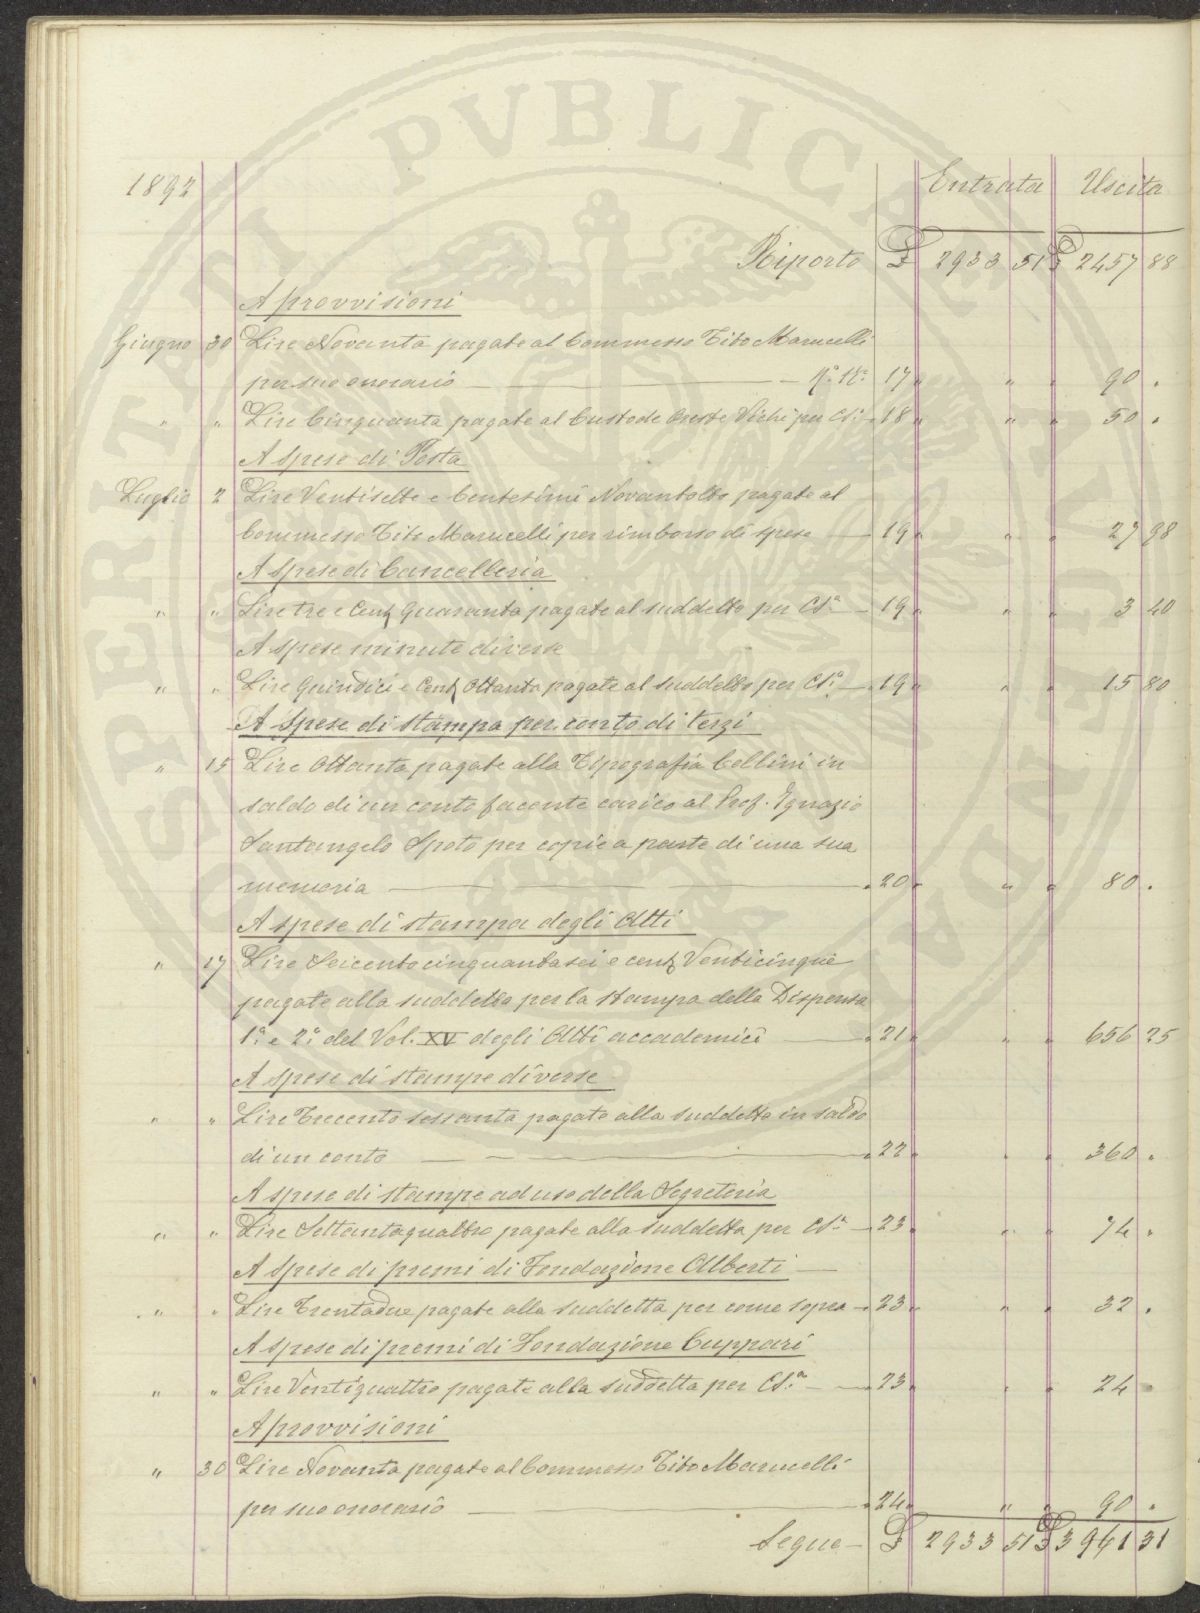 PROSPERITATI PVBLICAE AVGENDAE
1892 Entrata Uscita
Riporto £ 2933 51 £ 2457 88
A provvisioni
Giugno 30 Lire Novanta pagate al Commesso Tito Marucelli
per suo onorario — N.° 17 " " " 90 .
" " Lire Cinquanta pagate al Custode Oreste Vichi per Cs.ª 18 " " " 50 .
A spese di Posta
Luglio 2 Lire Ventisette e Centesimi Novantotto pagate al
Commesso Tito Marucelli per rimborso di spese — 19 " " " 27 98
A spese di Cancelleria
" " Lire tre e Cent. Quaranta pagate al suddetto per Cs.ª — 19 " " " 3 40
A spese minute diverse
" " Lire Quindici e Cent. Ottanta pagate al suddetto per Cs.ª — 19 " " " 15 80
A Spese di stampa per conto di terzi
" 15 Lire Ottanta pagate alla Tipografia Cellini in
saldo di un conto facente carico al Prof. Ignazio
Santangelo Spoto per copie a parte di una sua
memoria — 20 " " " 80 .
A spese di stampa degli Atti
" 17 Lire Seicentocinquantasei e cent. Venticinque
pagate alla suddetta per la stampa della Dispensa
1.ª e 2.ª del Vol. XV degli Atti accademici — 21 " " " 656 25
A spese di stampe diverse
" " Lire Trecento sessanta pagate alla suddetta in saldo
di un conto — 22 " " " 360 .
A spese di stampe ad uso della Segreteria
" " Lire Settantaquattro pagate alla suddetta per Cs.ª — 23 " " " 74 .
A spese di premi di Fondazione Alberti —
" " Lire Trentadue pagate alla suddetta per come sopra — 23 " " " 32 .
A spese di premi di Fondazione Cuppari
" " Lire Ventiquattro pagate alla suddetta per Cs.ª — 23 " " " 24 -
A provvisioni
" 30 Lire Novanta pagate al Commesso Tito Marucelli
per suo onorario — 24 " " " 90 .
Segue — £ 2933 51 £ 3961 31